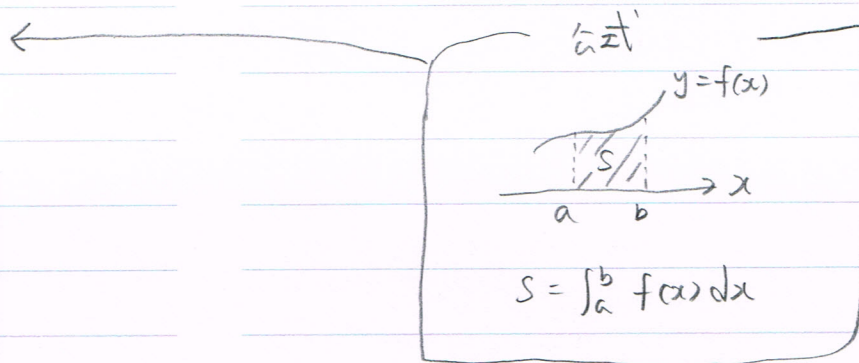 公式
y=f(x)
S
x
a b
S = ∫_a^b f(x) dx